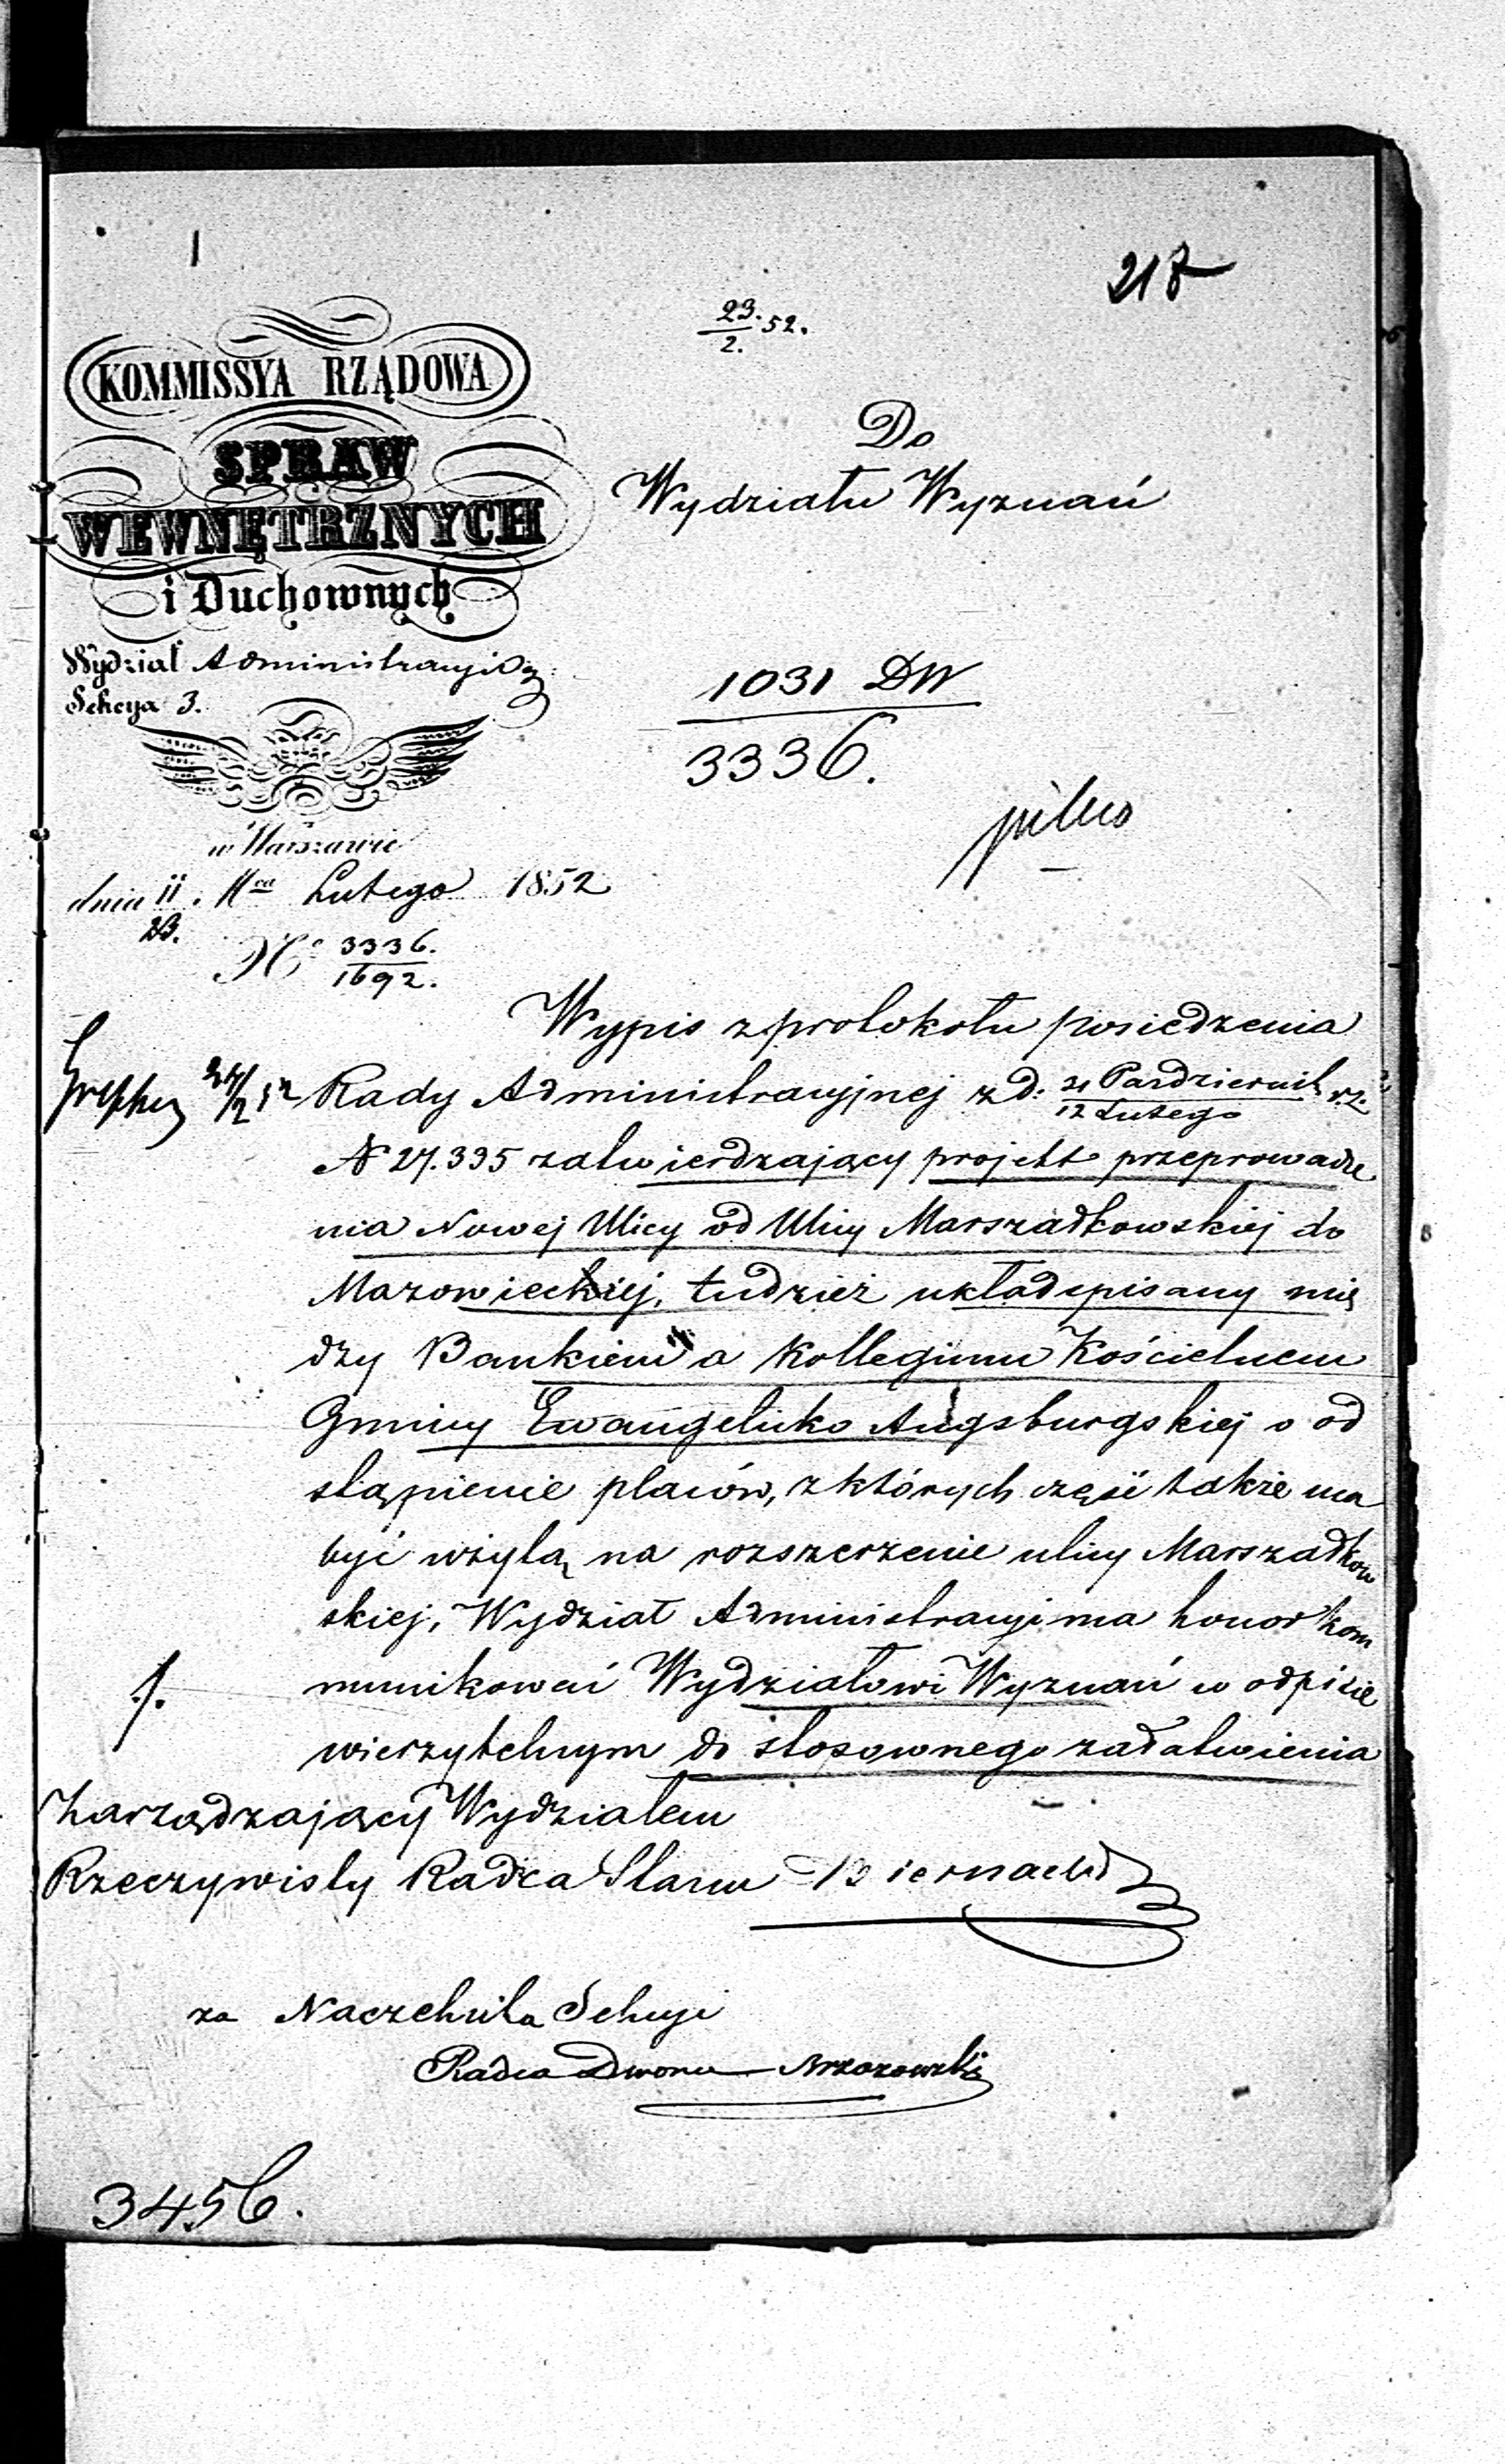 1
218
23./2. 52.
KOMMISSYA RZĄDOWA
SPRAW
WEWNĘTRZNYCH
i Duchownych
Do
Wydziału Wyznań
Wydział Administracyi
Sekcya 3.
1031 DW
3336.
pilno
w Warszawie
dnia 11/23. Mca Lutego 1852
No 3336./1692.
Wypis z protokołu posiedzenia
24/2 52
Rady Administracyjnej z d: 31 Pazdziernik/12 Lutego r.z.
N 27.335 zatwierdzający projekt przeprowadze
nia Nowej Ulicy od Ulicy Marszałkowskiej do
Mazowieckiej, tudzież układ spisany mię
dzy Bankiem a Kollegium Kościelnem
Gminy Ewangelicko Augsburgskiej o od
stąpienie placów, z których część także ma
być użytą na rozszerzenie ulicy Marszałkow
skiej, Wydział Administracyi ma honor kom
munikować Wydziałowi Wyznań w odpisie
./.
wierzytelnym do stosownego załatwienia
Zarządzający Wydziałem
Rzeczywisty Radca Stanu Biernacki
za Naczelnika Sekcyi
Radca Dworu Brzozowski
3456.